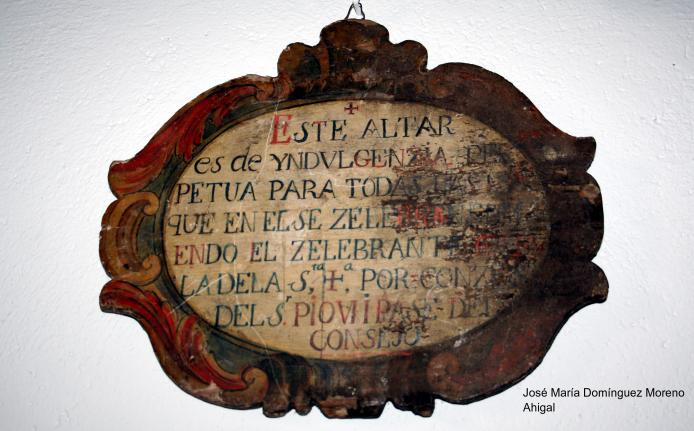 +
ESTE ALTAR
es de YNDVLGENZIA
PETUA PARA TODAS LAS
QUE EN EL SE ZELE
ENDO EL ZELEBRANT
LA DE LA S.ra +.a POR CONZ
DEL S.r PIO VI PASE DEL
CONSEJO
José María Domínguez Moreno
Ahigal